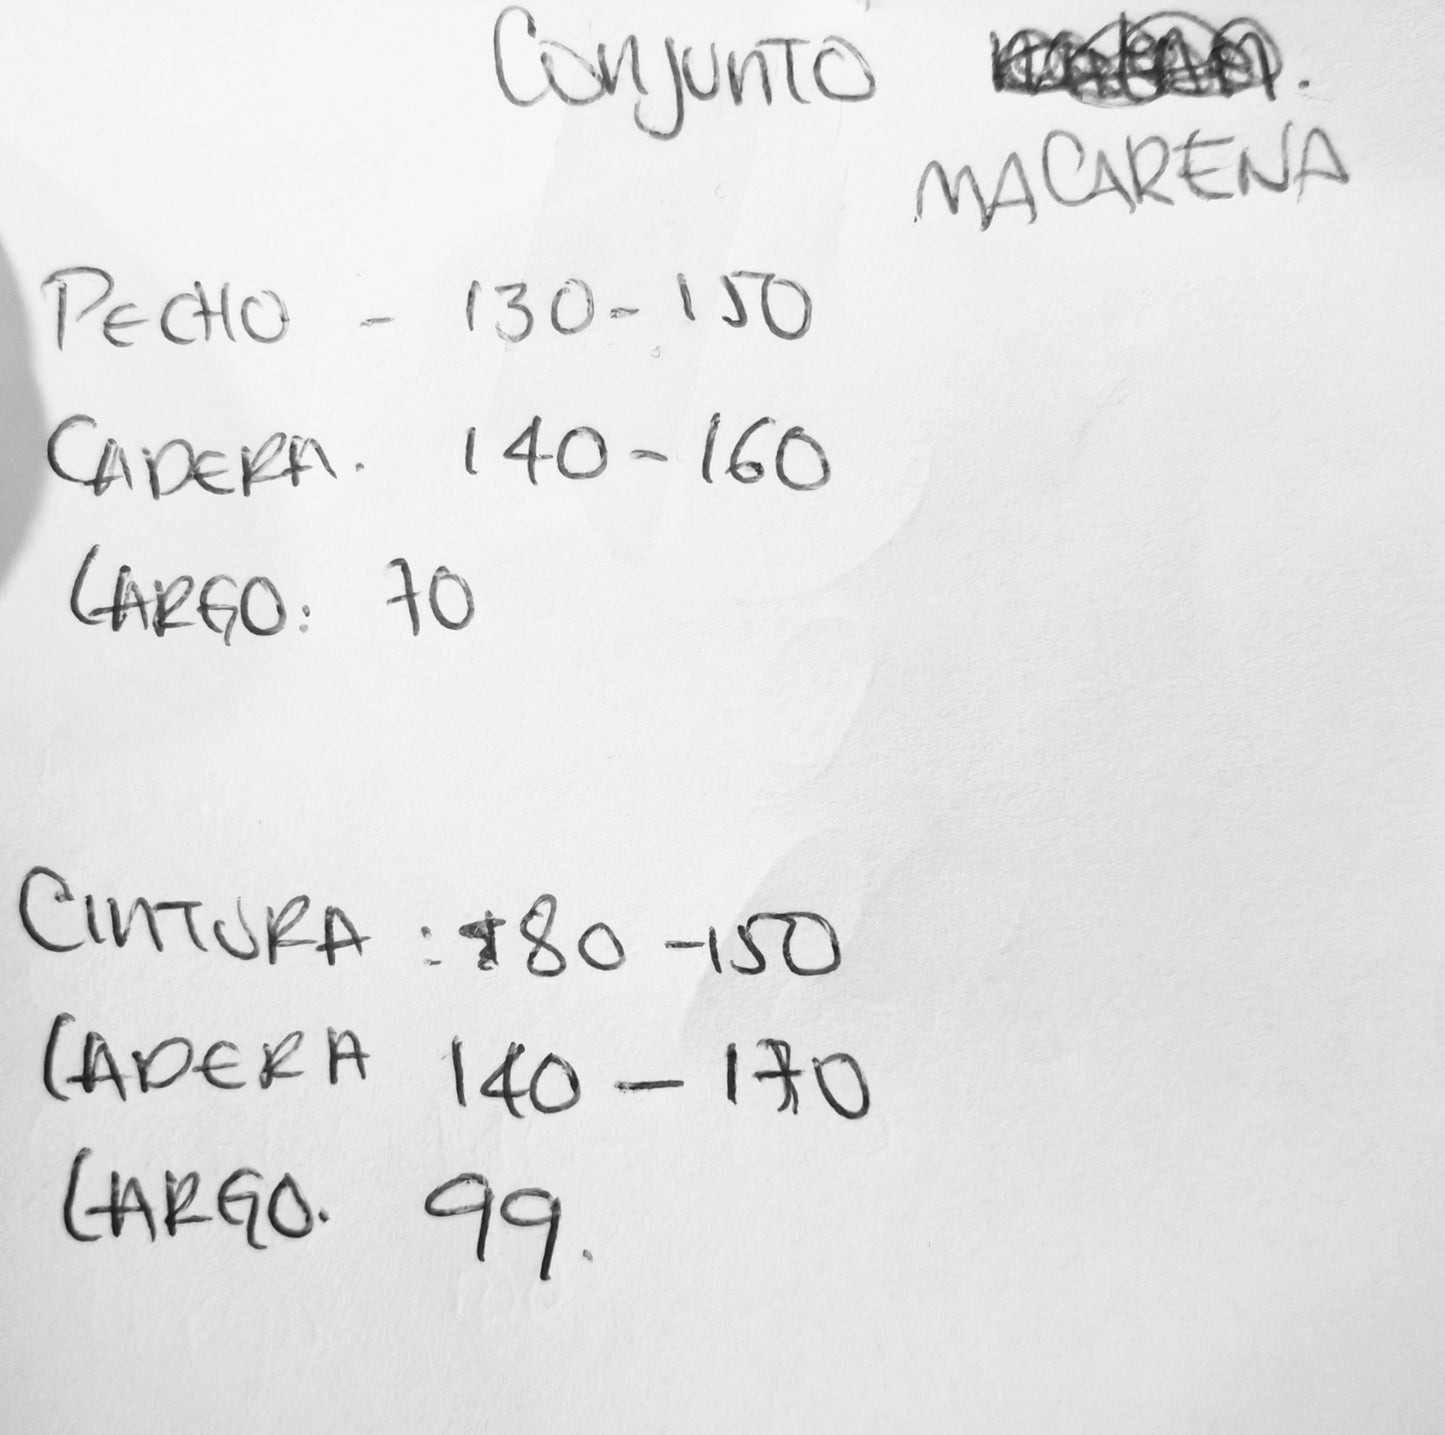 CONJUNTO
MACARENA
PECHO - 130-150
CADERA. 140-160
LARGO: 70
CINTURA: 80-150
CADERA 140-170
LARGO. 99.